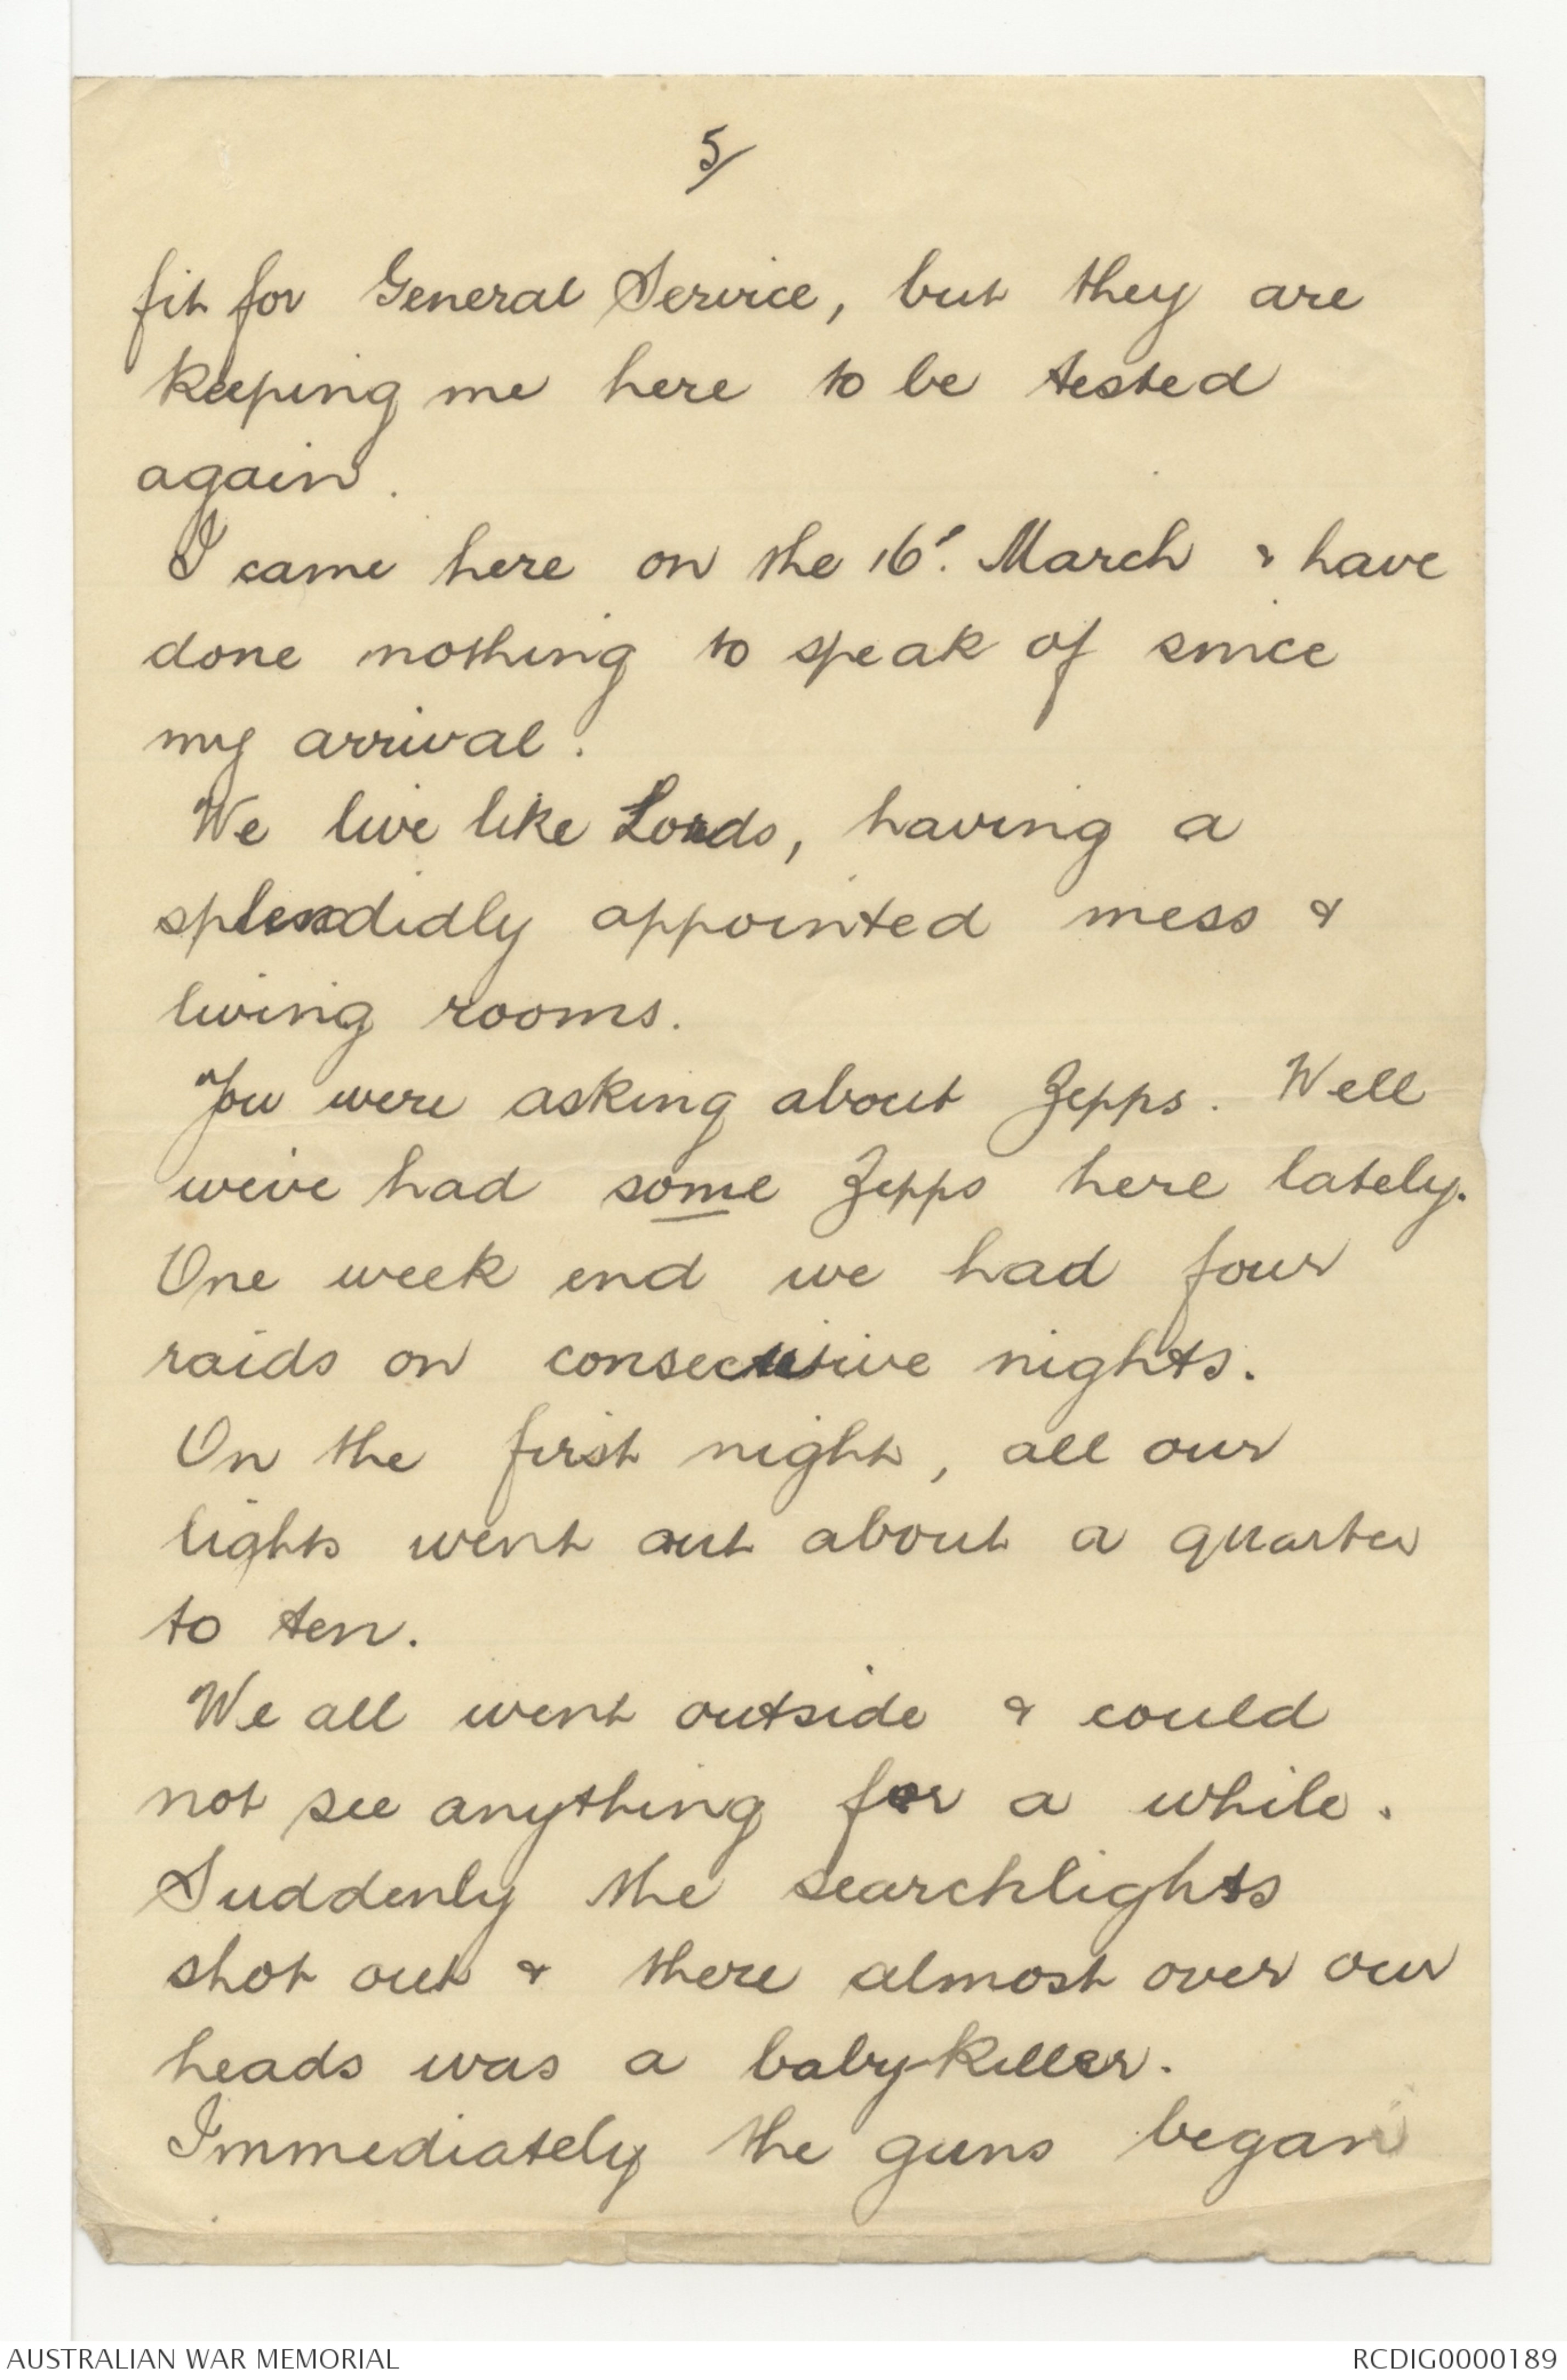 5/
fit for General Service, but they are
keeping me here to be tested
again.
I came here on the 16'. March & have
done nothing to speak of since
my arrival.
We live like Lords, having a
splendidly appointed mess &
living rooms.
You were asking about Zepps. Well
we've had some Zepps here lately.
One week end we had four
raids on consecutive nights.
On the first night, all our
lights went out about a quarter
to ten.
We all went outside & could
not see anything for a while.
Suddenly the searchlights
shot out & there almost over our
heads was a baby-killer.
Immediately the guns began
AUSTRALIAN WAR MEMORIAL
RCDIG0000189